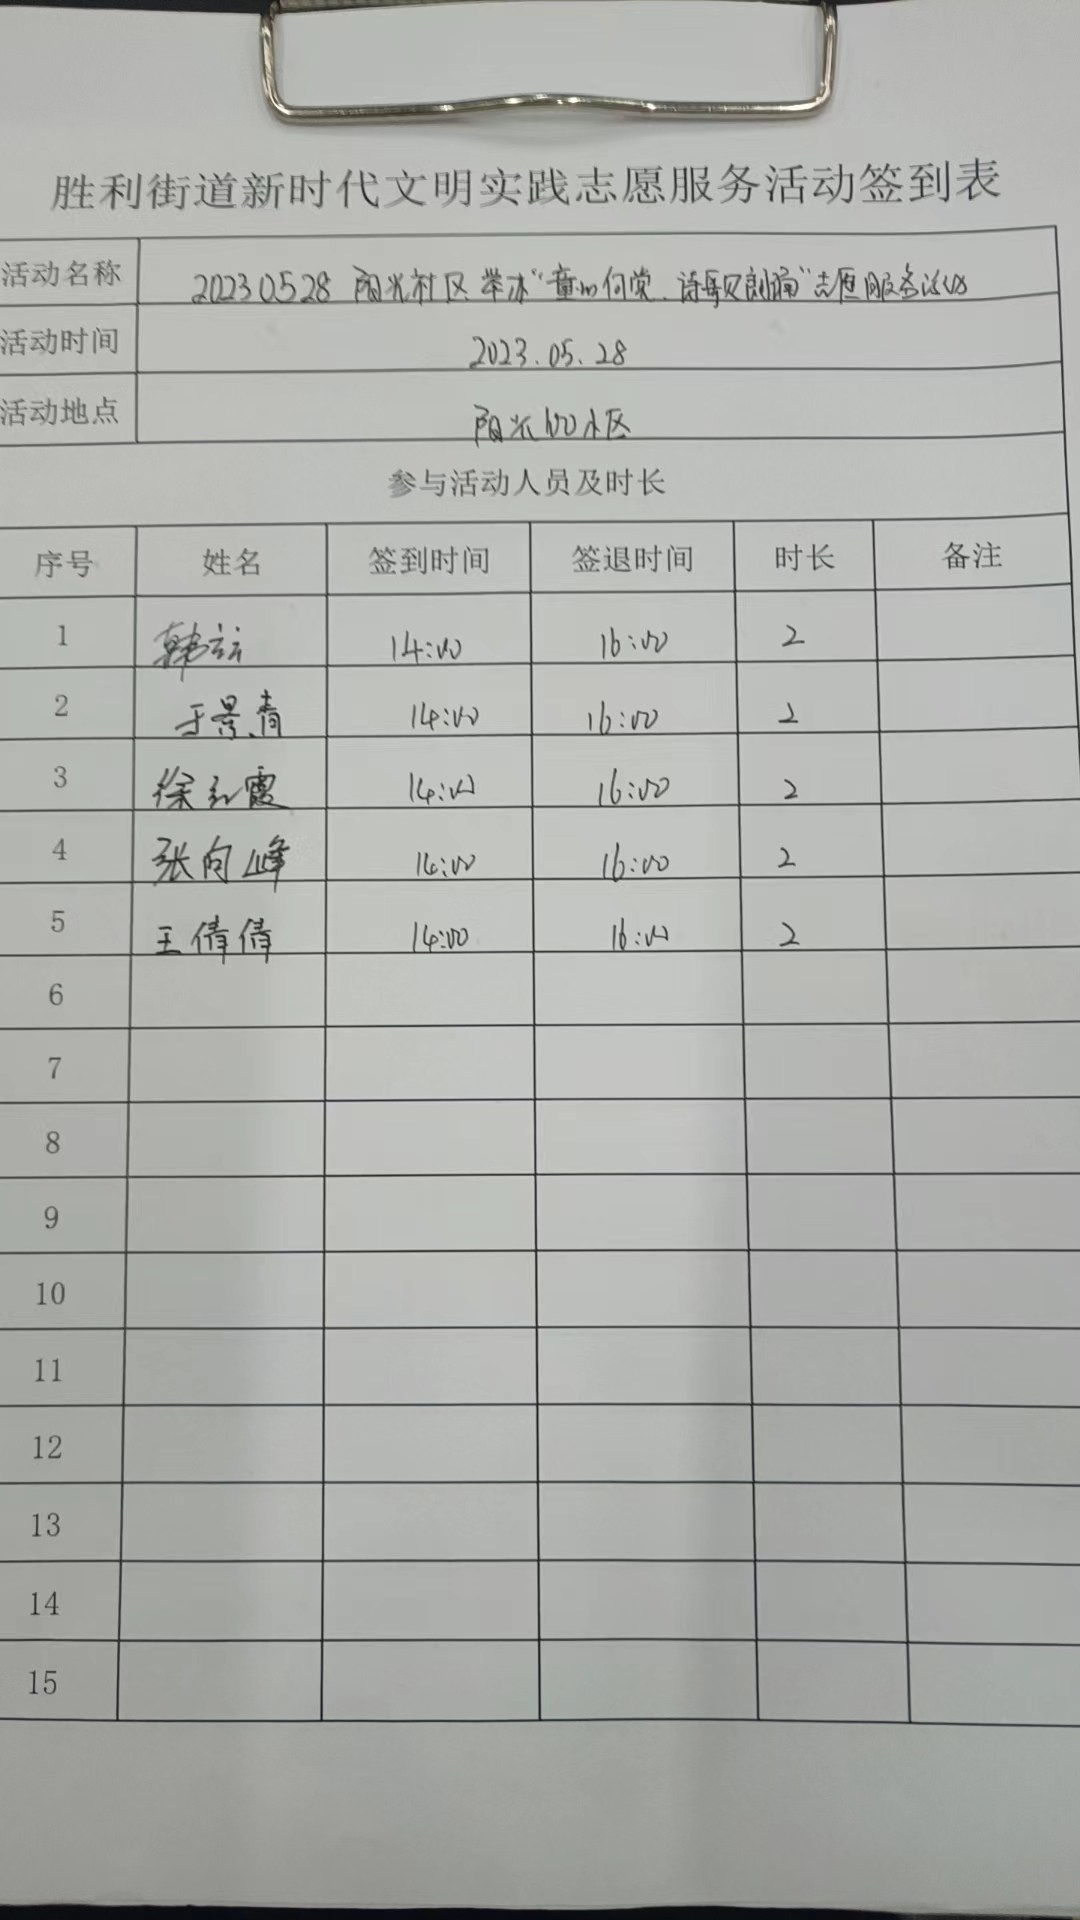 胜利街道新时代文明实践志愿服务活动签到表
活动名称 20230528 阳光社区举办"童心向党.诗歌朗诵"志愿服务活动
活动时间 2023.05.28
活动地点 阳光100小区
参与活动人员及时长
序号 姓名 签到时间 签退时间 时长 备注
1 韩 14:00 16:00 2
2 于景青 14:00 16:00 2
3 徐红霞 14:00 16:00 2
4 张向峰 14:00 16:00 2
5 王倩倩 14:00 16:00 2
6
7
8
9
10
11
12
13
14
15